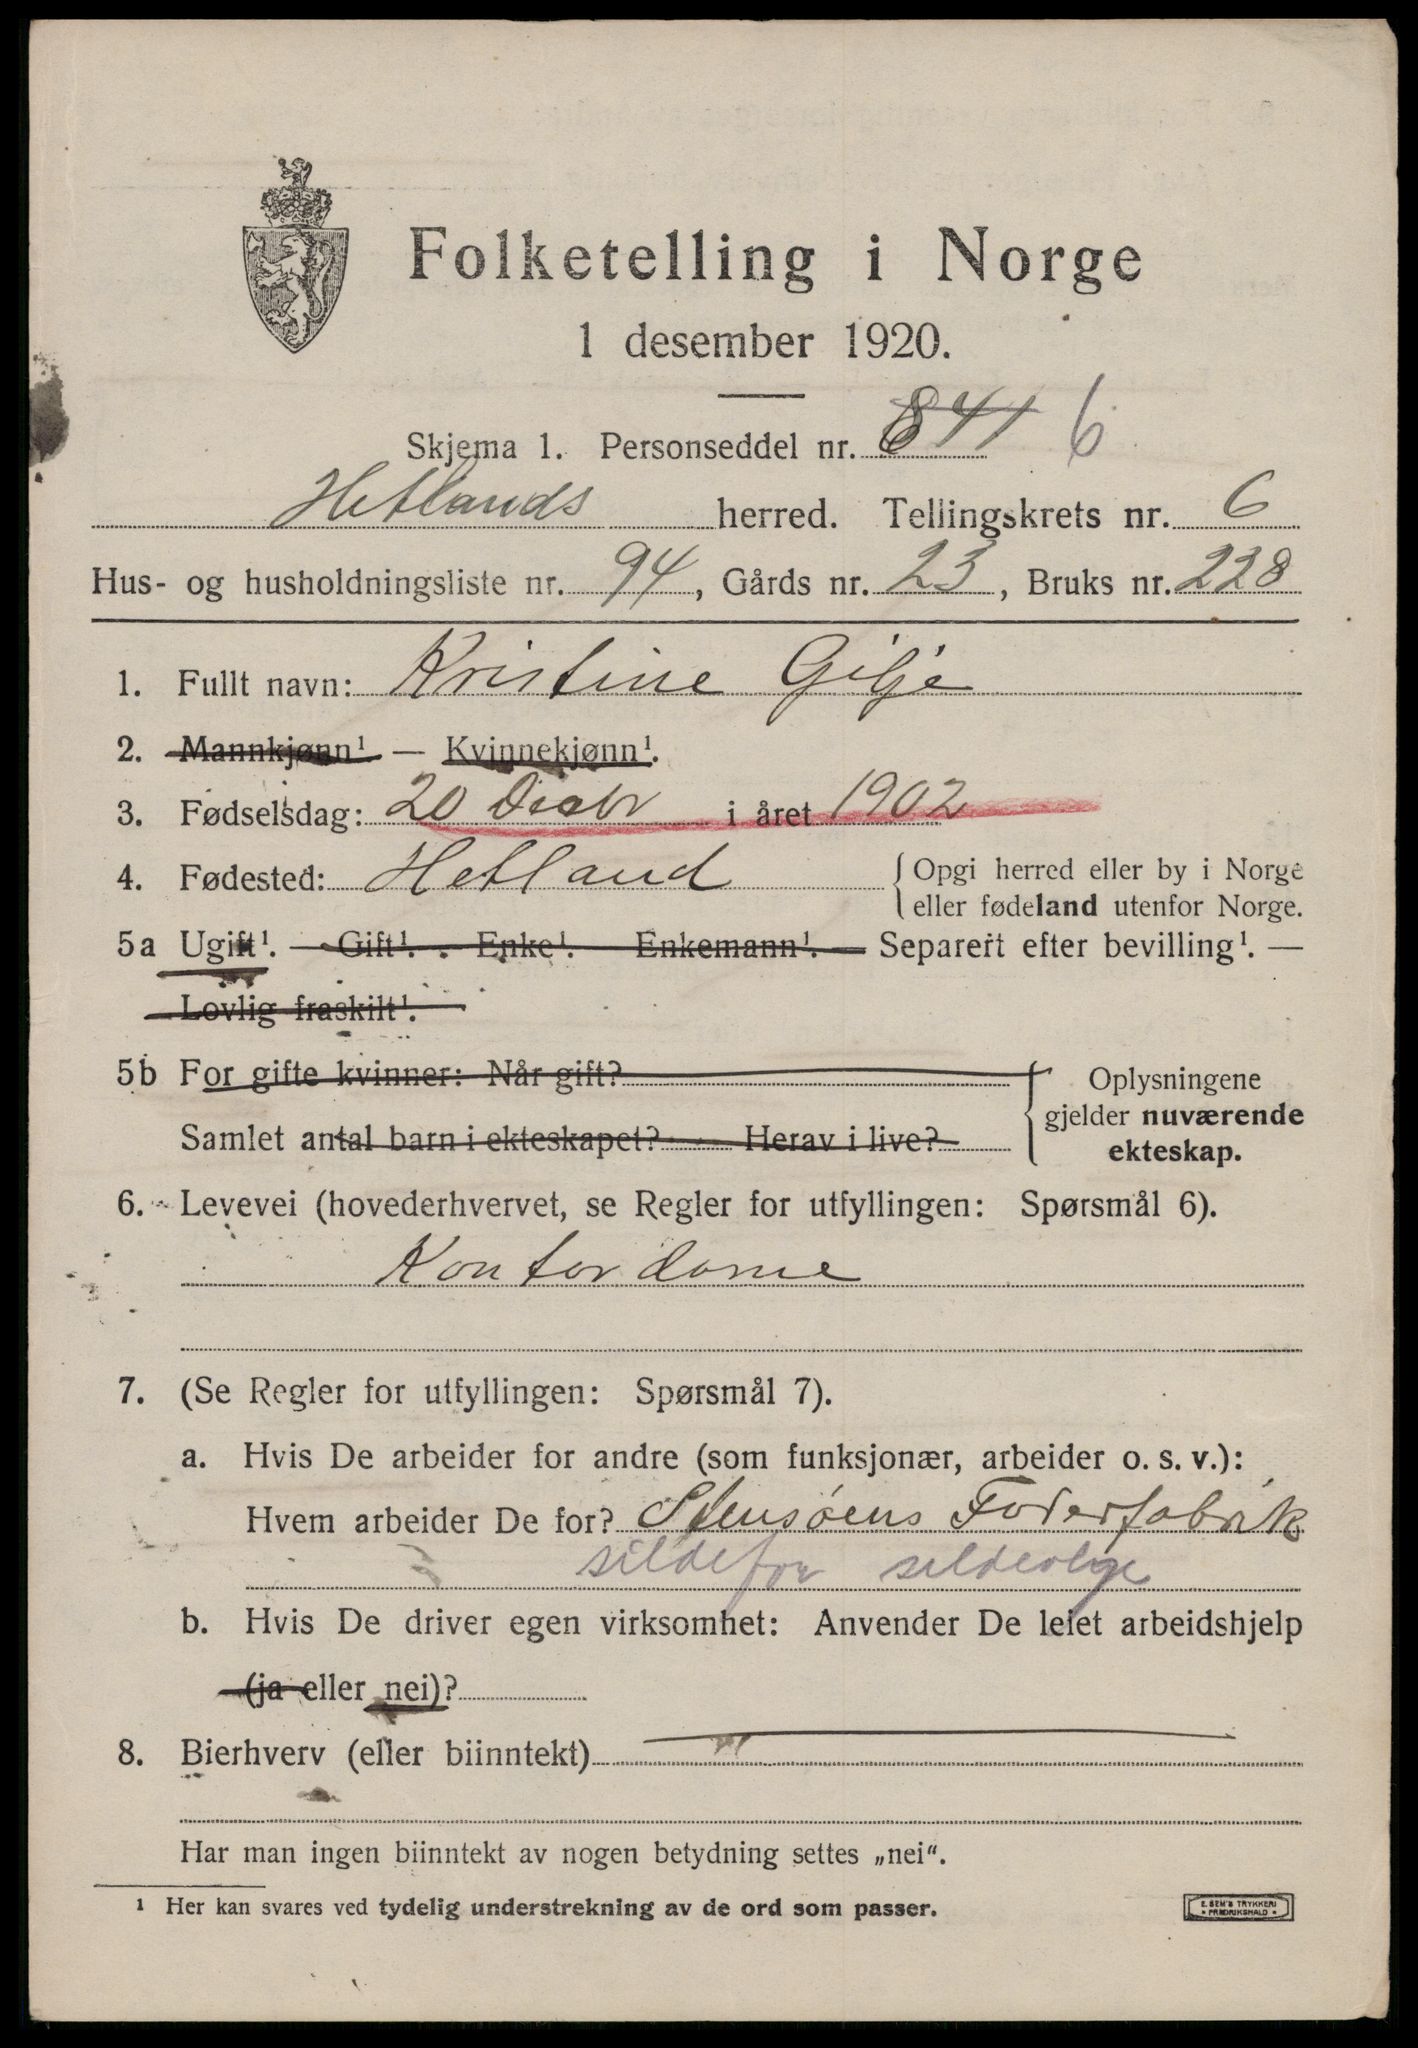 Folketelling i Norge
1 desember 1920.
Skjema 1. Personseddel nr. 841 6
Hetlands herred. Tellingskrets nr. 6
Hus- og husholdningsliste nr. 94, Gårds nr. 23, Bruks nr. 228
1. Fullt navn: Kristine Gilje
2. Mannkjønn¹ — Kvinnekjønn¹.
3. Fødselsdag: 20 Decbr i året 1902
4. Fødested: Hetland { Opgi herred eller by i Norge
eller fødeland utenfor Norge.
5a Ugift¹. — Gift¹. - Enke¹. Enkemann¹. — Separert efter bevilling¹. —
Lovlig fraskilt¹.
5b For gifte kvinner: Når gift? { Oplysningene
gjelder nuværende
Samlet antal barn i ekteskapet? Herav i live?
ekteskap.
6. Levevei (hovederhvervet, se Regler for utfyllingen: Spørsmål 6).
Kontordame
7. (Se Regler for utfyllingen: Spørsmål 7).
a. Hvis De arbeider for andre (som funksjonær, arbeider o. s. v.):
Hvem arbeider De for? Stensøens Foderfabrik
sildefor sildeolge
b. Hvis De driver egen virksomhet: Anvender De leiet arbeidshjelp
(ja eller nei)?
8. Bierhverv (eller biinntekt)
Har man ingen biinntekt av nogen betydning settes „nei“.
¹ Her kan svares ved tydelig understrekning av de ord som passer.
E. SEM'S TRYKKERI
* FREDRIKSHALD *